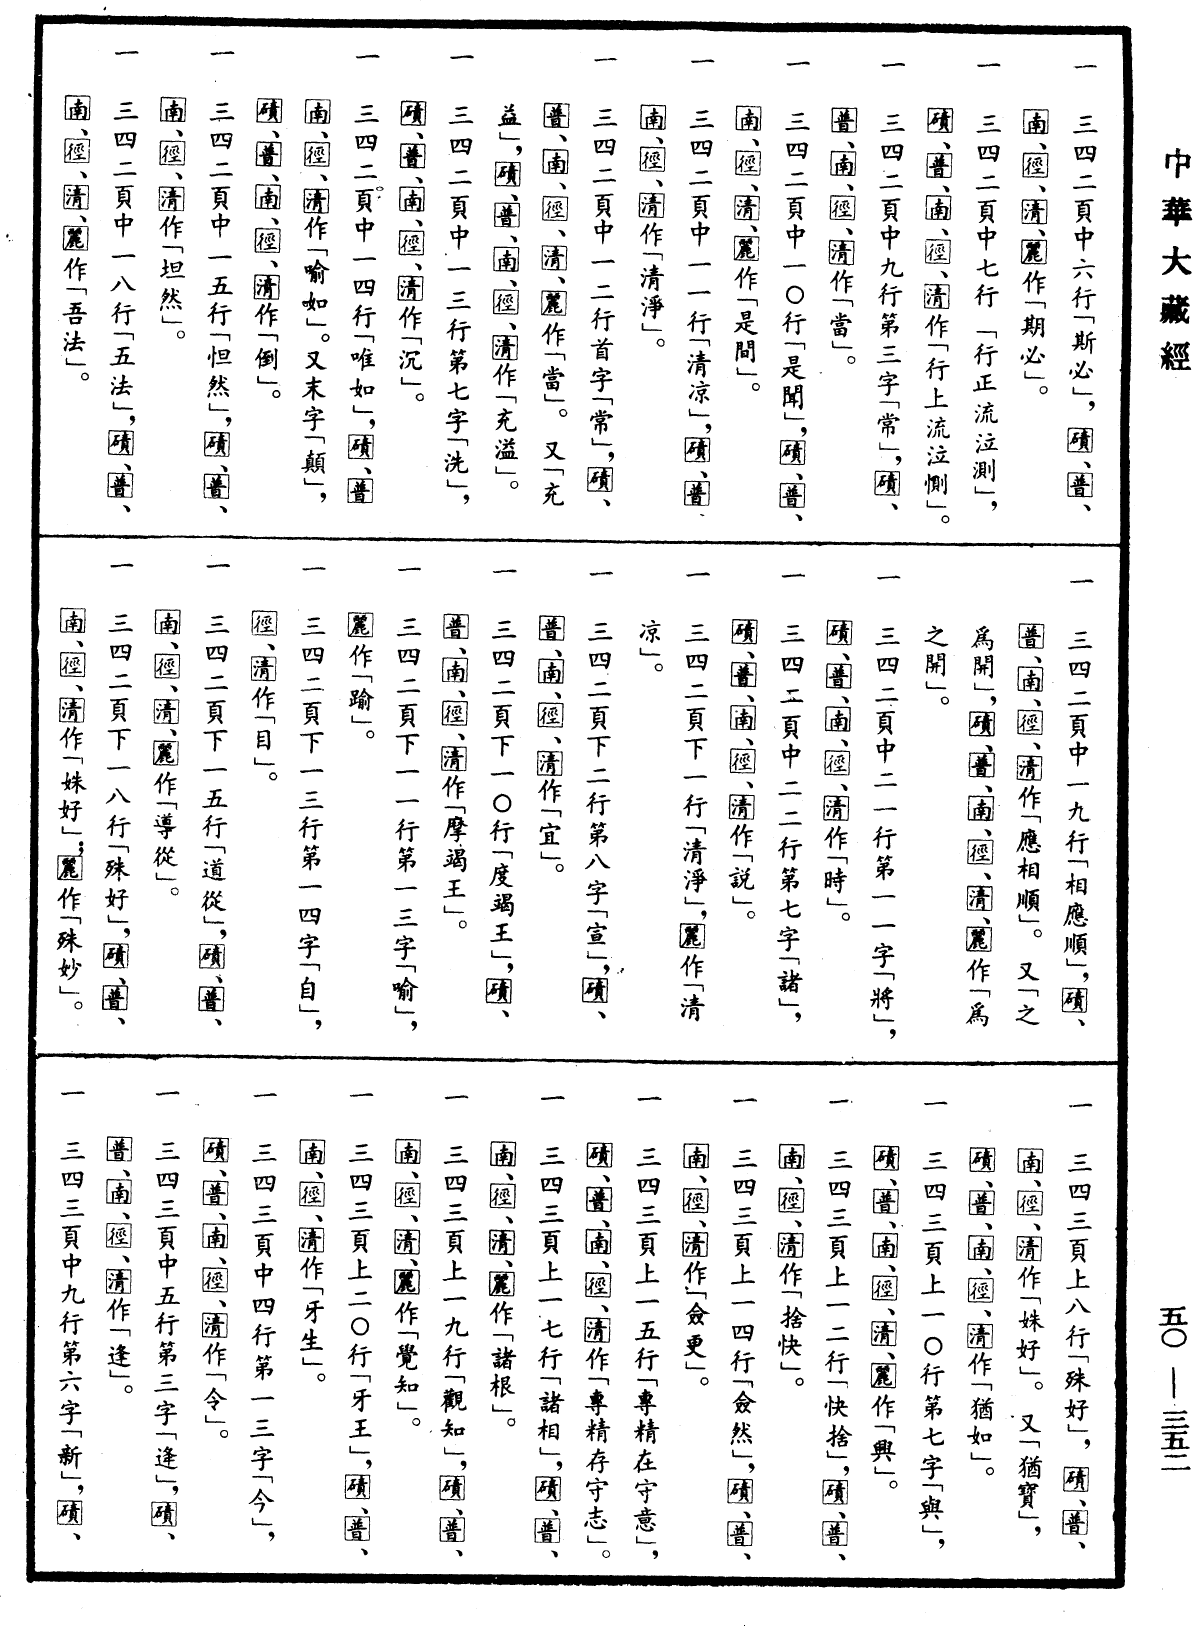 中華大藏經
一　三四二頁中六行「斯必」，磧、普、
南、徑、清、麗作「期必」。
一　三四二頁中七行「行正流泣測」，
磧、普、南、徑、清作「行上流泣惻」。
一　三四二頁中九行第三字「常」，磧、
普、南、徑、清作「當」。
一　三四二頁中一〇行「是聞」，磧、普、
南、徑、清、麗作「是問」。
一　三四二頁中一一行「清凉」，磧、普、
南、徑、清作「清淨」。
一　三四二頁中一二行首字「常」，磧、
普、南、徑、清、麗作「當」。又「充
益」，磧、普、南、徑、清作「充溢」。
一　三四二頁中一三行第七字「洗」，
磧、普、南、徑、清作「沉」。
一　三四二頁中一四行「唯如」，磧、普
南、徑、清作「喻如」。又末字「顛」，
磧、普、南、徑、清作「倒」。
一　三四二頁中一五行「怛然」，磧、普、
南、徑、清作「坦然」。
一　三四二頁中一八行「五法」，磧、普、
南、徑、清、麗作「吾法」。
一　三四二頁中一九行「相應順」，磧、
普、南、徑、清作「應相順」。又「之
爲開」，磧、普、南、徑、清、麗作「爲
之開」。
一　三四二頁中二一行第一一字「將」，
磧、普、南、徑、清作「時」。
一　三四二頁中二二行第七字「諸」，
磧、普、南、徑、清作「説」。
一　三四二頁下一行「清淨」，麗作「清
凉」。
一　三四二頁下二行第八字「宣」，磧、
普、南、徑、清作「宜」。
一　三四二頁下一〇行「度竭王」，磧、
普、南、徑、清作「摩竭王」。
一　三四二頁下一一行第一三字「喻」，
麗作「踰」。
一　三四二頁下一三行第一四字「自」，
徑、清作「目」。
一　三四二頁下一五行「道從」，磧、普、
南、徑、清、麗作「導從」。
一　三四二頁下一八行「殊好」，磧、普、
南、徑、清作「姝好」；麗作「殊妙」。
一　三四三頁上八行「殊好」，磧、普、
南、徑、清作「姝好」。又「猶寶」，
磧、普、南、徑、清作「猶如」。
一　三四三頁上一〇行第七字「與」，
磧、普、南、徑、清、麗作「興」。
一　三四三頁上一二行「快捨」，磧、普、
南、徑、清作「捨快」。
一　三四三頁上一四行「僉然」，磧、普、
南、徑、清作「僉更」。
一　三四三頁上一五行「專精在守意」，
磧、普、南、徑、清作「專精存守志」。
一　三四三頁上一七行「諸相」，磧、普、
南、徑、清、麗作「諸根」。
一　三四三頁上一九行「觀知」，磧、普、
南、徑、清、麗作「覺知」。
一　三四三頁上二〇行「牙王」，磧、普、
南、徑、清作「牙生」。
一　三四三頁中四行第一三字「今」，
磧、普、南、徑、清作「令」。
一　三四三頁中五行第三字「逄」，磧、
普、南、徑、清作「逢」。
一　三四三頁中九行第六字「新」，磧、
五〇——三五二